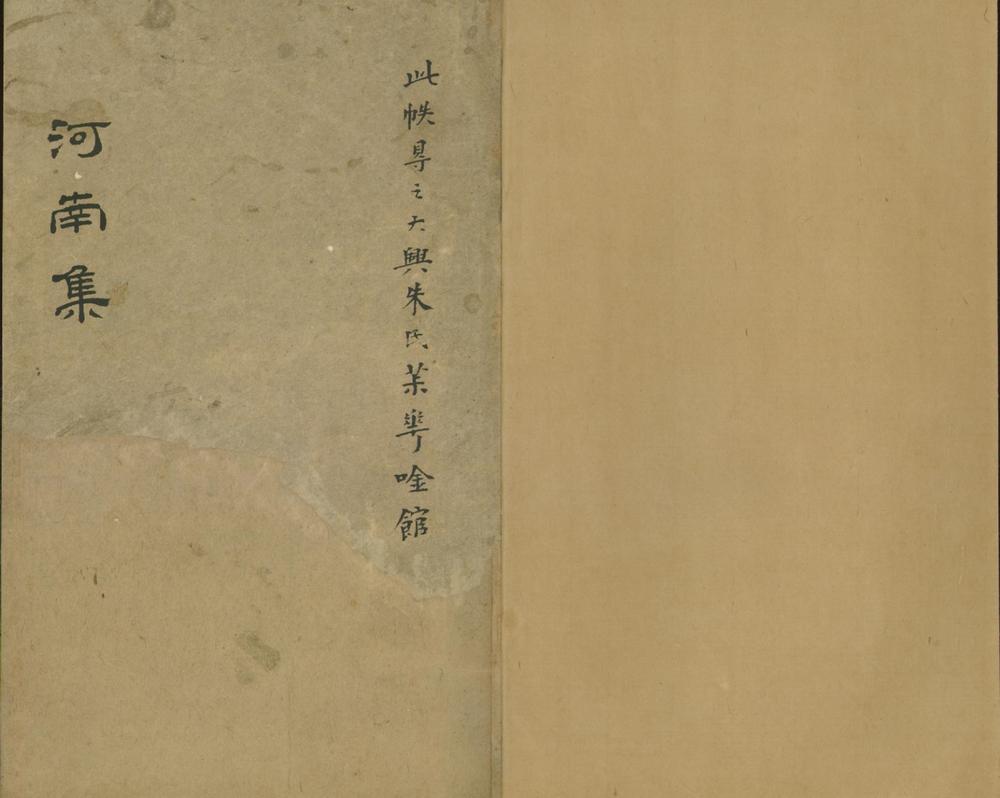 此帙㝵之大興朱氏茮華唫館
河南集